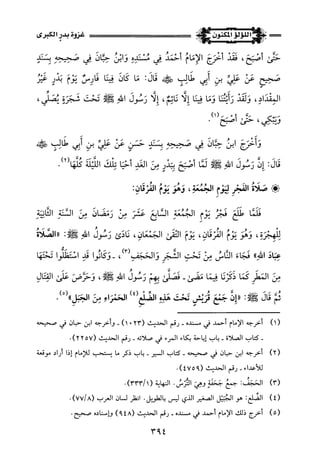 اللؤلؤ المكنون
غزوة بدر الكبرى
حَتَّى أَصْبَحَ، فَقَدْ أَخْرَجَ الإِمَامُ أَحْمَدُ فِي مُسْنَدِهِ وَابْنُ حِبَّانَ فِي صَحِيحِهِ بِسَنَدٍ
صَحِيحٍ عَنْ عَلِيِّ بنِ أَبِي طَالِبٍ ﷺ قَالَ: مَا كَانَ فِينَا فَارِسٌ يَوْمَ بَدْرٍ غَيْرُ
المِقْدَادِ، وَلَقَدْ رَأَيْتُنَا وَمَا فِينَا إِلَّا نَائِمٌ، إِلَّا رَسُولَ اللهِ ﷺ تَحْتَ شَجَرَةٍ يُصَلِّي،
وَيَبْكِي، حَتَّى أَصْبَحَ(١).
وَأَخْرَجَ ابنُ حِبَّانَ فِي صَحِيحِهِ بِسَنَدٍ حَسَنٍ عَنْ عَلِيِّ بنِ أَبِي طَالِبٍ
قَالَ: إِنَّ رَسُولَ اللهِ ﷺ لَمَّا أَصْبَحَ بِبَدْرٍ مِنَ الغَدِ أَحْيَا تِلْكَ اللَّيْلَةَ كُلَّهَا(٢).
صَلَاةُ الفَجْرِ لِيَوْمِ الجُمُعَةِ، وَهُوَ يَوْمُ الفُرْقَانِ:
فَلَمَّا طَلَعَ فَجْرُ يَوْمِ الجُمُعَةِ السَّابِعَ عَشَرَ مِنْ رَمَضَانَ مِنَ السَّنَةِ الثَّانِيَةِ
لِلْهِجْرَةِ، وَهُوَ يَوْمُ الفُرْقَانِ، يَوْمَ التَقَى الجَمْعَانِ، نَادَى رَسُولُ اللهِ ﷺ: «الصَّلَاةُ
عِبَادَ اللهِ» فَجَاءَ النَّاسُ مِنْ تَحْتِ الشَّجَرِ وَالحَجَفِ(٣)، ـ وَكَانُوا قَدِ اسْتَظَلُّوا تَحْتَهَا
مِنَ المَطَرِ كَمَا ذَكَرْنَا فِيمَا مَضَى ـ فَصَلَّى بِهِمْ رَسُولُ اللهِ ﷺ، وَحَرَّضَ عَلَى القِتَالِ
ثُمَّ قَالَ ﷺ: «إِنَّ جَمْعَ قُرَيْشٍ تَحْتَ هَذِهِ الضِّلَعِ(٤) الحَمْرَاءِ مِنَ الجَبَلِ»(٥).
(١) أخرجه الإمام أحمد في مسنده ـ رقم الحديث (١٠٢٣) ـ وأخرجه ابن حبان في صحيحه
ـ كتاب الصلاة ـ باب إباحة بكاء المرء في صلاته ـ رقم الحديث (٢٢٥٧).
(٢) أخرجه ابن حبان في صحيحه ـ كتاب السير ـ باب ذكر ما يستحب للإمام إذا أراد موقعة
للأعداء ـ رقم الحديث (٤٧٥٩).
(٣) الحَجَفُ: جمعُ جَحَفَةٍ وهي التُّرْسُ. النهاية (٣٣٣/١).
(٤) الضِّلَعُ: هو الجُبَيْل الصغير الذي ليس بالطويل. انظر لسان العرب (٧٧/٨).
(٥) أخرج ذلك الإمام أحمد في مسنده ـ رقم الحديث (٩٤٨) وإسناده صحيح.
٣٩٤